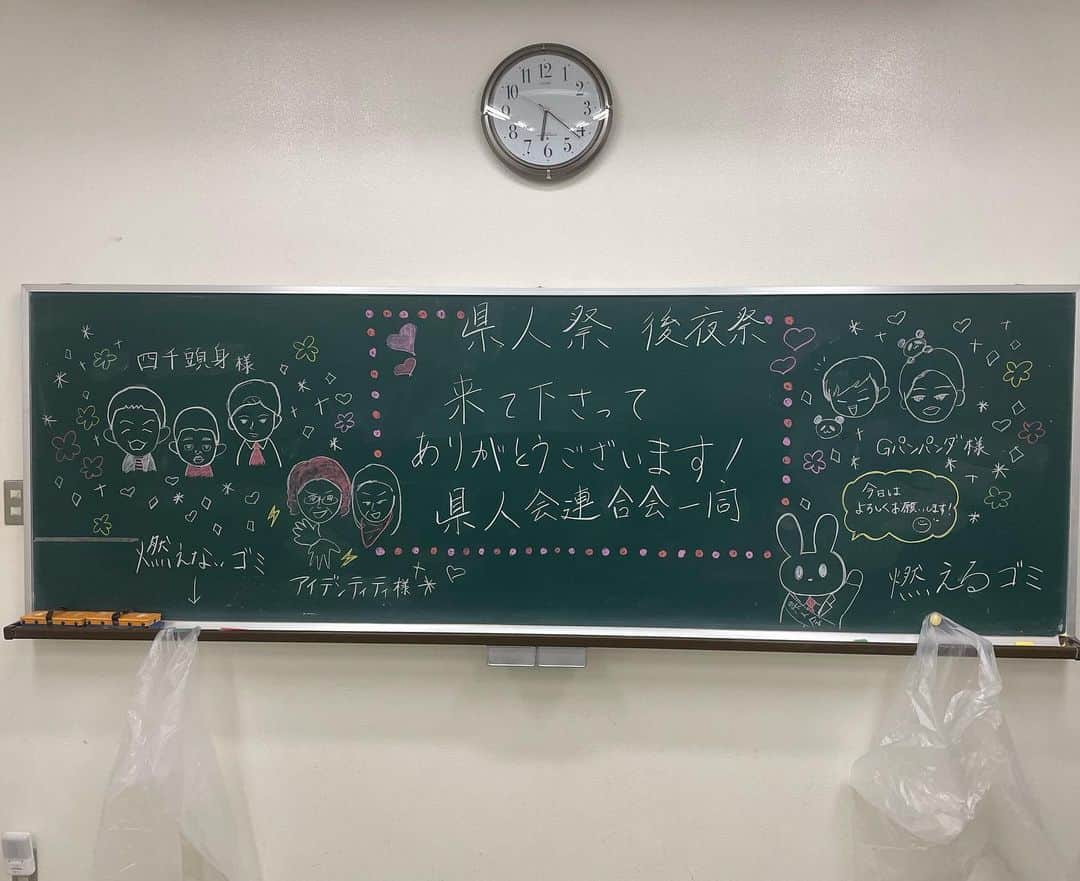 12
1
2
3
4
5
6
7
8
9
10
11
県人祭 後夜祭
来て下さって
ありがとうございます!
県人会連合会一同
四千頭身様
アイデンティティ様
Gパンパンダ様
今日は
よろしくお願いします!
燃えないゴミ
燃えるゴミ